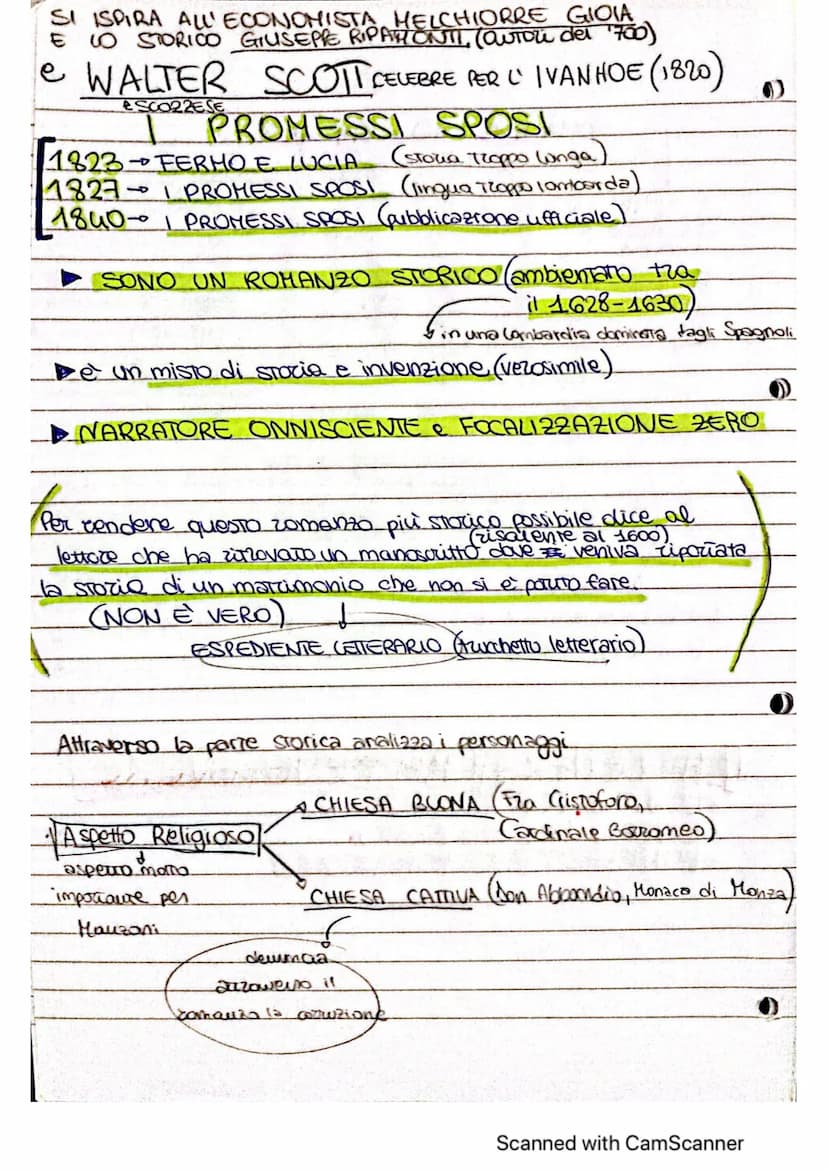 SI ISPIRA ALL'ECONOMISTA MELCHIORRE GIOIA
E LO STORICO GIUSEPPE RIPAMONTI, (autori del '700)
e WALTER SCOTT CELEBRE PER L'IVANHOE (1820)
è SCOZZESE
I PROMESSI SPOSI
1823→ FERMO E LUCIA (storia troppo lunga)
1827→ I PROMESSI SPOSI (lingua troppo lombarda)
1840→ I PROMESSI SPOSI (pubblicazione ufficiale)
SONO UN ROMANZO STORICO (ambientato tra
il 1628-1630)
in una Lombardia dominata dagli Spagnoli
è un misto di storia e invenzione (verosimile)
NARRATORE ONNISCIENTE e FOCALIZZAZIONE ZERO
Per rendere questo romanzo più storico possibile dice al
(risalente al 1600)
lettore che ha ritrovato un manoscritto dove veniva riportata
la storia di un matrimonio che non si è potuto fare.
(NON È VERO)
ESPEDIENTE LETTERARIO (trucchetto letterario)
Attraverso la parte storica analizza i personaggi
CHIESA BUONA (Fra Cristoforo,
Cardinale Borromeo)
Aspetto Religioso
aspetto molto
importante per
Manzoni
CHIESA CATTIVA (Don Abbondio, Monaca di Monza)
denuncia
attraverso il
romanzo la corruzione
Scanned with CamScanner